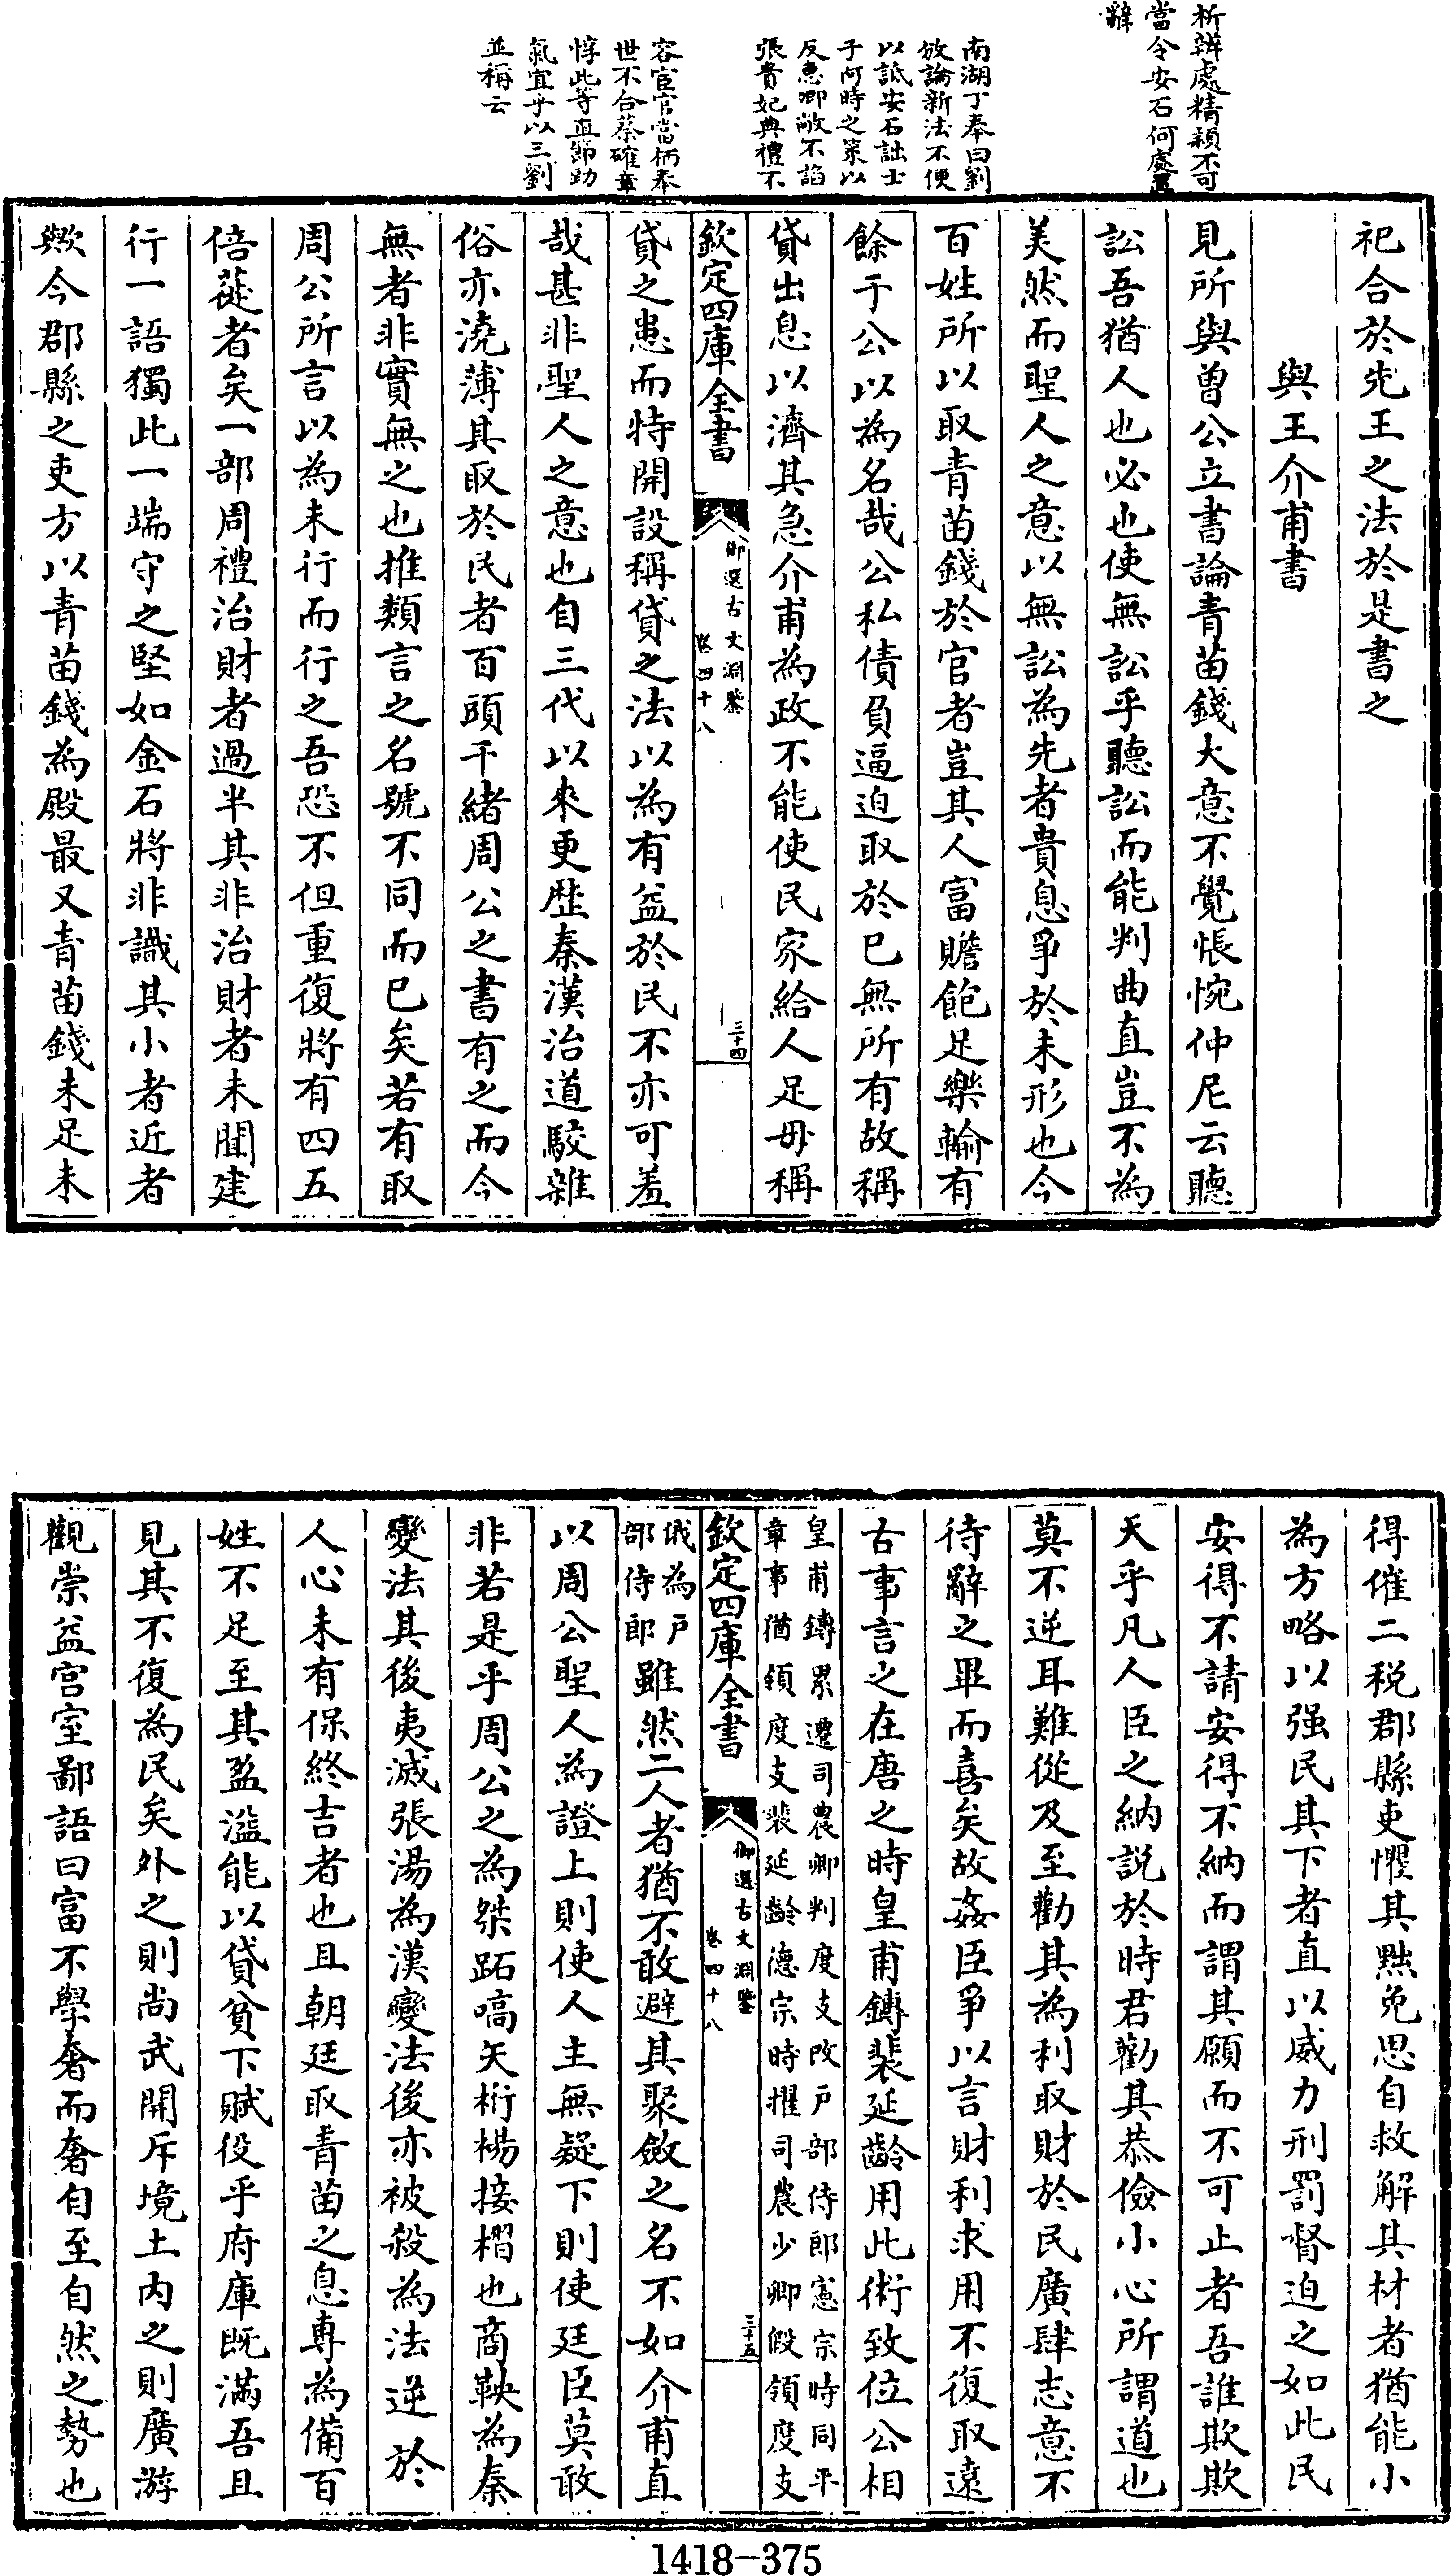 析辨處精穎不可
當令安石何處置
辭
南湖丁奉曰劉
攽論新法不便
以詆安石詘士
子何時之策以
反惠卿敵不諂
張貴妃典禮不
容宦官當柄奉
世不合蔡確章
惇此等直節勁
氣宜乎以三劉
並稱云
祀合於先王之法於是書之
與王介甫書
見所與曾公立書論青苗錢大意不覺悵惋仲尼云聽
訟吾猶人也必也使無訟乎聽訟而能判曲直豈不為
美然而聖人之意以無訟為先者貴息爭於未形也今
百姓所以取青苗錢於官者豈其人富贍飽足樂輸有
餘于公以為名哉公私債負逼迫取於已無所有故稱
貸出息以濟其急介甫為政不能使民家給人足毋稱
欽定四庫全書
御選古文淵鑒
卷四十八
三十四
貸之患而特開設稱貸之法以為有益於民不亦可羞
哉甚非聖人之意也自三代以來更歷秦漢治道駮雜
俗亦澆薄其取於民者百頭千緒周公之書有之而今
無者非實無之也推類言之名號不同而已矣若有取
周公所言以為未行而行之吾恐不但重復將有四五
倍蓰者矣一部周禮治財者過半其非治財者未聞建
行一語獨此一端守之堅如金石將非識其小者近者
歟今郡縣之吏方以青苗錢為殿最又青苗錢未足未
得催二税郡縣吏懼其黜免思自救解其材者猶能小
為方略以强民其下者直以威力刑罰督迫之如此民
安得不請安得不納而謂其願而不可止者吾誰欺欺
天乎凡人臣之納説於時君勸其恭儉小心所謂道也
莫不逆耳難從及至勸其為利取財於民廣肆志意不
待辭之畢而喜矣故姦臣爭以言財利求用不復取遠
古事言之在唐之時皇甫鎛裴延齡用此術致位公相
皇甫鎛累遷司農卿判度支改戶部侍郎憲宗時同平
章事猶領度支裴延齡德宗時擢司農少卿假領度支
欽定四庫全書
御選古文淵鑒
卷四十八
三十五
俄為戶
部侍郎
雖然二人者猶不敢避其聚斂之名不如介甫直
以周公聖人為證上則使人主無疑下則使廷臣莫敢
非若是乎周公之為桀跖嚆矢桁楊接槢也商鞅為秦
變法其後夷滅張湯為漢變法後亦被殺為法逆於
人心未有保終吉者也且朝廷取青苗之息專為備百
姓不足至其盈溢能以貸貧下賦役乎府庫既滿吾且
見其不復為民矣外之則尚武開斥境土内之則廣游
觀崇益宫室鄙語曰富不學奢而奢自至自然之勢也
1418-375